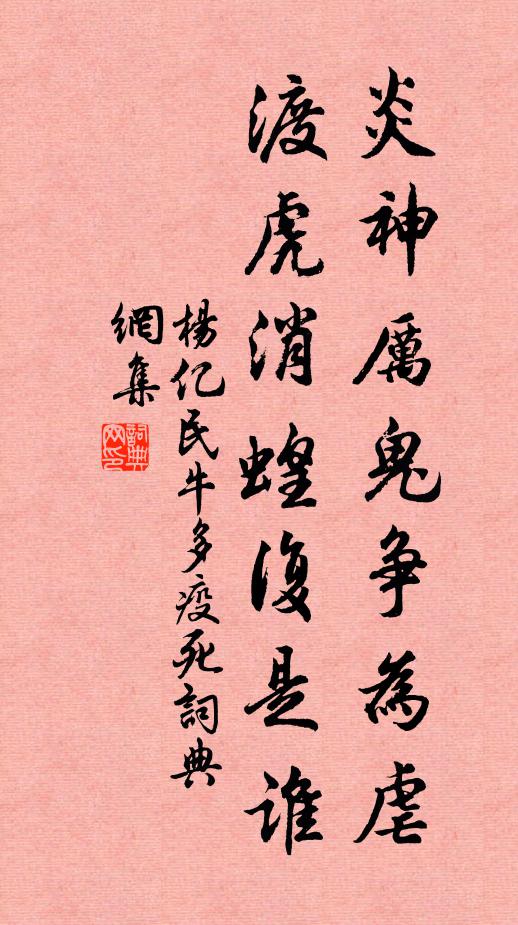 炎神厲鬼争為虐
渡虎消蝗復是誰
楊亿民牛多疫死詞典
網集
詞典网印